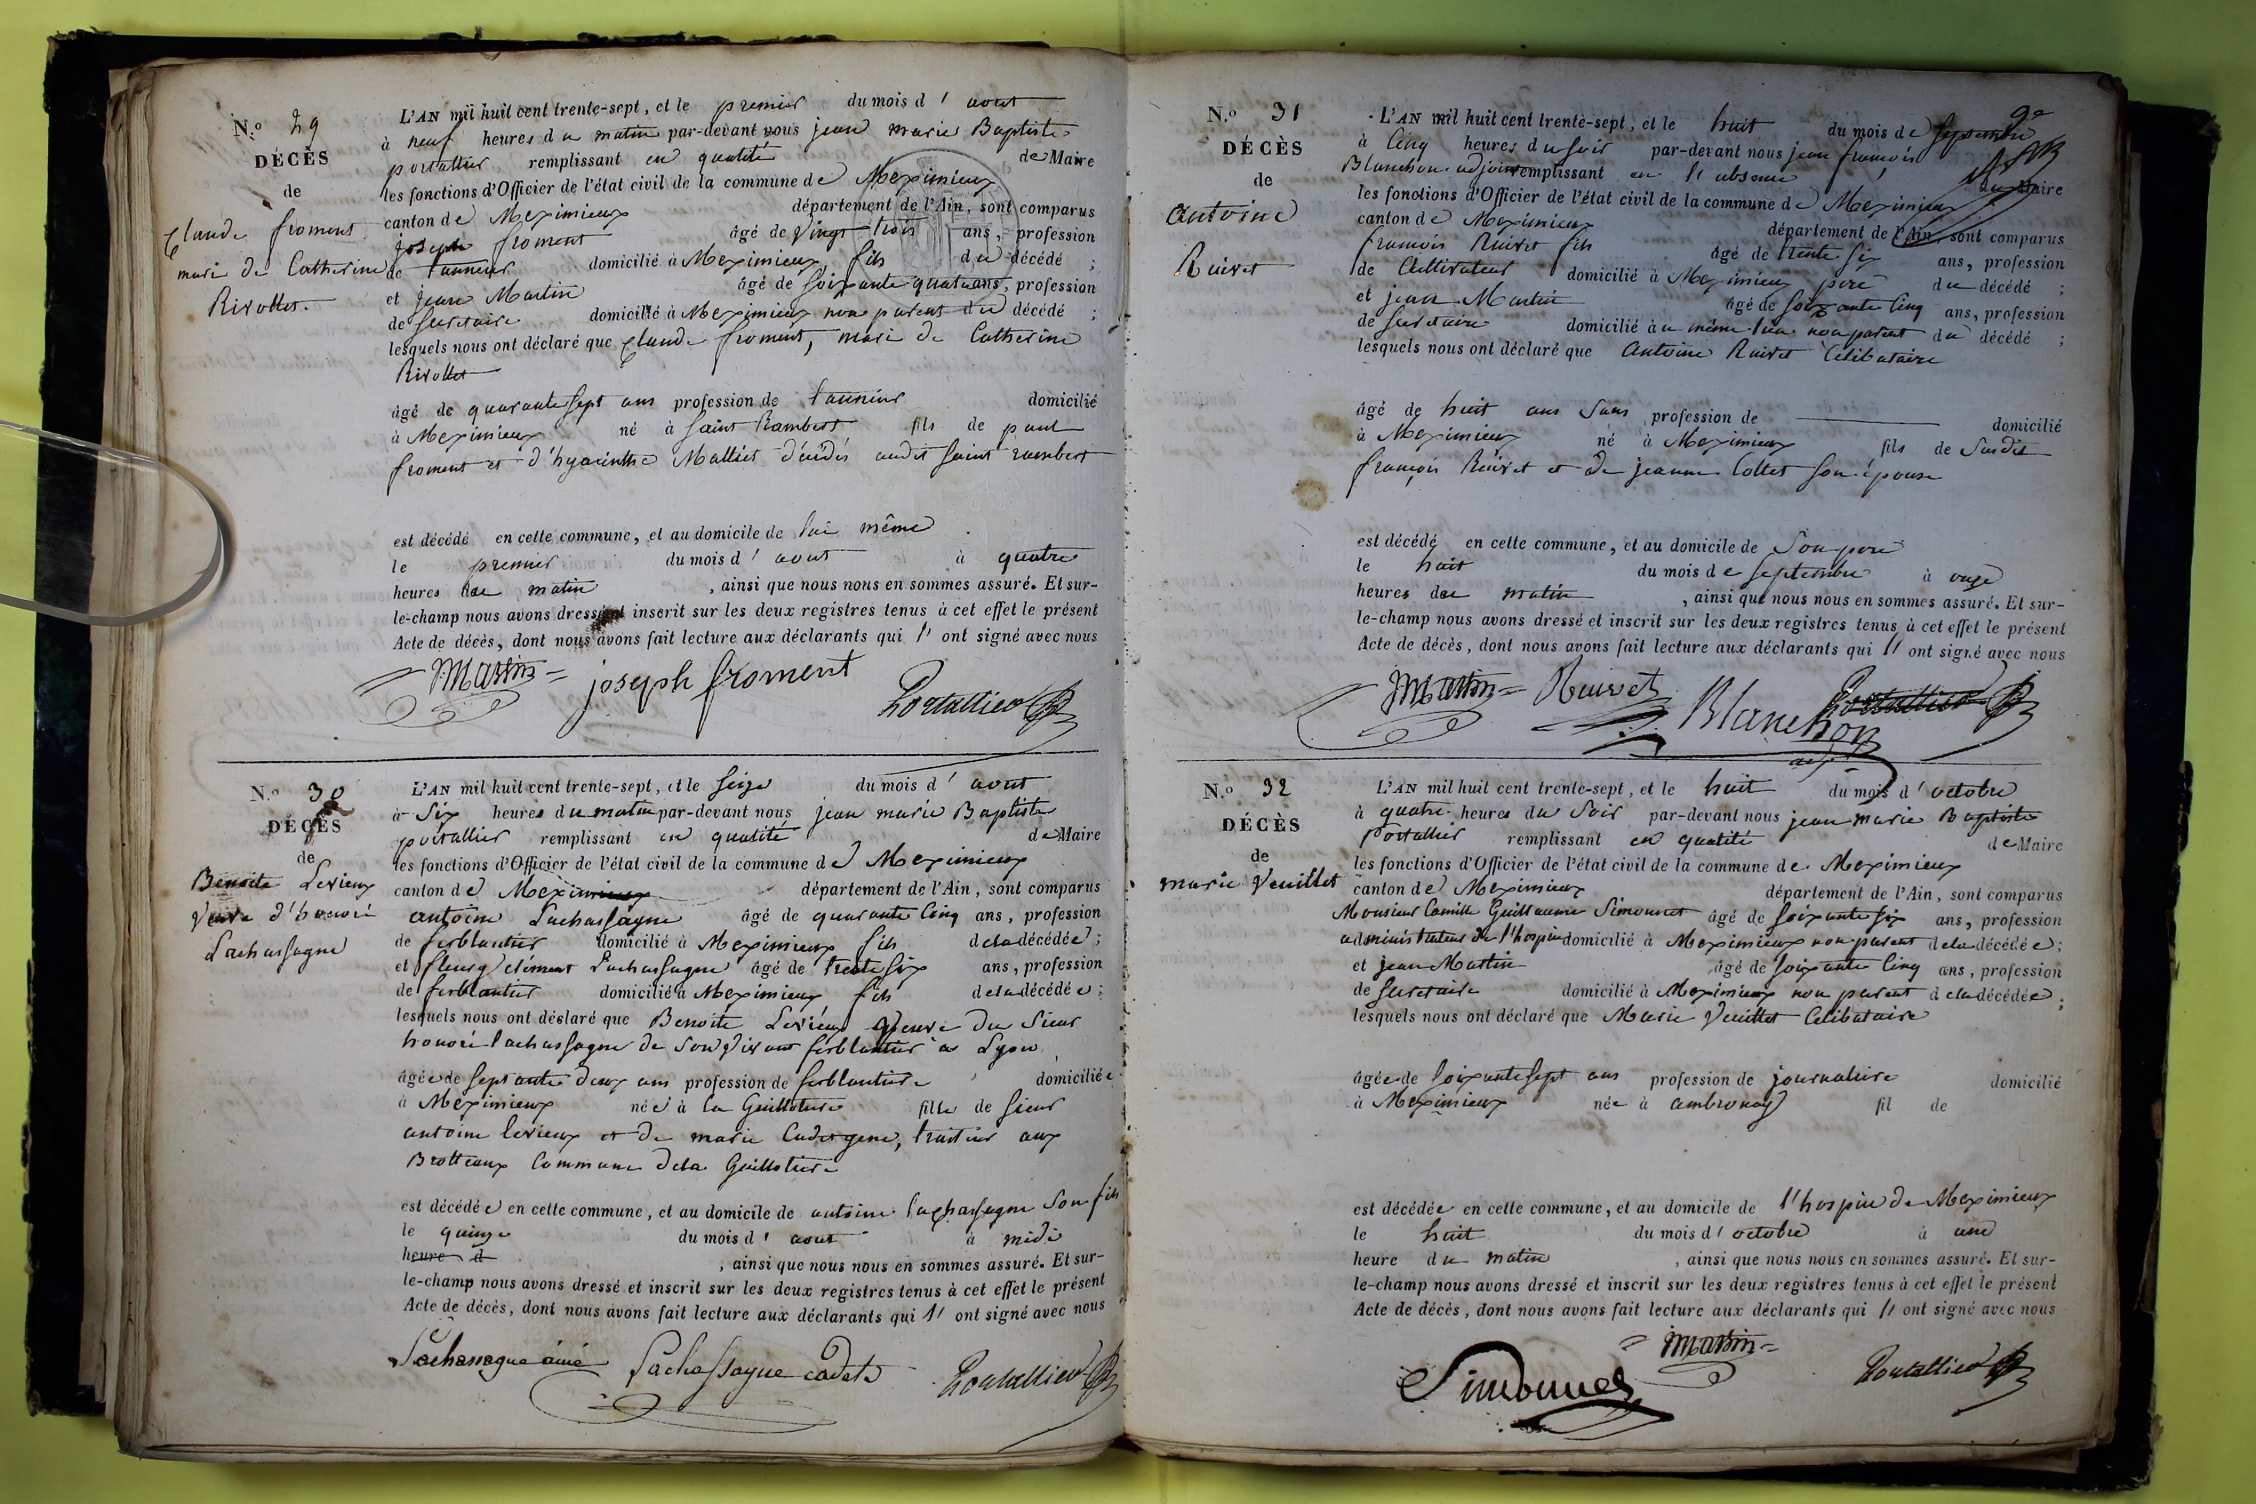 N.o 29
DÉCÈS
de
Claude froment
mari de Catherine
Rivollet.
L'AN mil huit cent trente-sept, et le premier du mois d' aout
à neuf heures du matin par-devant nous jean marie Baptiste
portallier remplissant en qualité de Maire
les fonctions d'Officier de l'état civil de la commune de Meximieux
canton de Meximieux département de l'Ain, sont comparus
joseph froment âgé de vingt trois ans, profession
de tanneur domicilié à Meximieux fils du décédé ;
et jean Martin âgé de soixante quatre ans, profession
de secretaire domicilié à Meximieux non parent du décédé ;
lesquels nous ont déclaré que Claude froment, mari de Catherine
Rivollet
âgé de quarante sept ans profession de tanneur domicilié
à Meximieux né à saint Rambert fils de paul
froment et d'hyacinthe Malliet décédés audit saint rambert
est décédé en cette commune, et au domicile de lui même
le premier du mois d' aout à quatre
heures du matin , ainsi que nous nous en sommes assuré. Et sur-
le-champ nous avons dressé et inscrit sur les deux registres tenus à cet effet le présent
Acte de décès, dont nous avons fait lecture aux déclarants qui l' ont signé avec nous
Martin joseph froment Portallier
N.o 30
DÉCÈS
de
Benoite Levieux
Veuve d'honoré
Lachassagne
L'AN mil huit cent trente-sept, et le seize du mois d' aout
à six heures du matin par-devant nous jean marie Baptiste
portallier remplissant en qualité de Maire
les fonctions d'Officier de l'état civil de la commune de Meximieux
canton de Meximieux département de l'Ain, sont comparus
antoine Lachassagne âgé de quarante cinq ans, profession
de ferblantier domicilié à Meximieux fils de la décédée ;
et fleury clément Lachassagne âgé de trente six ans, profession
de ferblantier domicilié à Meximieux fils de la décédée ;
lesquels nous ont déclaré que Benoite Levieux veuve du sieur
honoré lachassagne de son vivant ferblantier à Lyon
âgée de septante deux ans profession de ferblantière domiciliée
à Meximieux née à la Guillotière fille de sieur
antoine levieux et de marie Cadet gene, traiteur aux
Brotteaux Commune dela Guillotière
est décédée en cette commune, et au domicile de antoine lachassagne son fils
le quinze du mois d' aout à midi
heure d , ainsi que nous nous en sommes assuré. Et sur-
le-champ nous avons dressé et inscrit sur les deux registres tenus à cet effet le présent
Acte de décès, dont nous avons fait lecture aux déclarants qui l' ont signé avec nous
Lachassagne ainé Lachassagne cadet Portallier
N.o 31
DÉCÈS
de
antoine
Ruivet
L'AN mil huit cent trente-sept, et le huit du mois de septembre
à cinq heures du soir par-devant nous jean françois
Blanchon adjoint remplissant en l'absence du Maire
les fonctions d'Officier de l'état civil de la commune de Meximieux
canton de Meximieux département de l'Ain, sont comparus
françois Ruivet fils âgé de trente six ans, profession
de cultivateur domicilié à Meximieux père du décédé ;
et jean Martin âgé de soixante cinq ans, profession
de secretaire domicilié au même lieu non parent du décédé ;
lesquels nous ont déclaré que antoine Ruivet Célibataire
âgé de huit ans sans profession de domicilié
à Meximieux né à Meximieux fils de susdit
françois Ruivet et de jeanne Collet son épouse
est décédé en cette commune, et au domicile de son père
le huit du mois de septembre à onze
heures du matin , ainsi que nous nous en sommes assuré. Et sur-
le-champ nous avons dressé et inscrit sur les deux registres tenus à cet effet le présent
Acte de décès, dont nous avons fait lecture aux déclarants qui l' ont signé avec nous
Martin Ruivet Blanchon Portallier
adj.
N.o 32
DÉCÈS
de
marie Veuillet
L'AN mil huit cent trente-sept, et le huit du mois d' octobre
à quatre heures du soir par-devant nous jean marie Baptiste
Portallier remplissant en qualité de Maire
les fonctions d'Officier de l'état civil de la commune de Meximieux
canton de Meximieux département de l'Ain, sont comparus
Monsieur Camille Guillaume Simonnet âgé de soixante six ans, profession
administrateur de l'hospice domicilié à Meximieux non parent de la décédée ;
et jean Martin âgé de soixante cinq ans, profession
de secretaire domicilié à Meximieux non parent de la décédée ;
lesquels nous ont déclaré que Marie Veuillet Celibataire
âgée de soixante sept ans profession de journalière domicilié
à Meximieux née à ambronay fil de
est décédée en cette commune, et au domicile de l'hospice de Meximieux
le huit du mois d' octobre à une
heure du matin , ainsi que nous nous en sommes assuré. Et sur-
le-champ nous avons dressé et inscrit sur les deux registres tenus à cet effet le présent
Acte de décès, dont nous avons fait lecture aux déclarants qui l' ont signé avec nous
Simonnet Martin Portallier